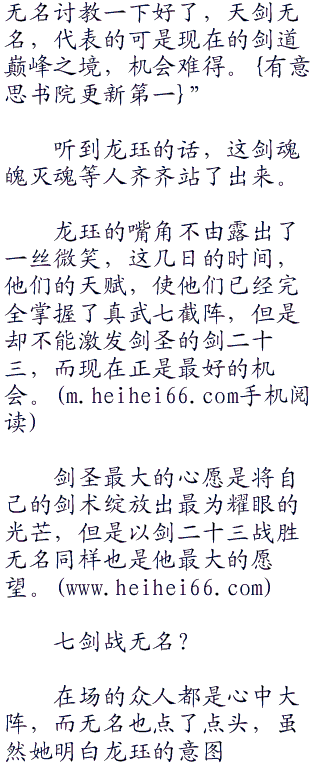 无名讨教一下好了，天剑无
名，代表的可是现在的剑道
巅峰之境，机会难得。{有意
思书院更新第一}”
听到龙珏的话，这剑魂
魄灭魂等人齐齐站了出来。
龙珏的嘴角不由露出了
一丝微笑，这几日的时间，
他们的天赋，使他们已经完
全掌握了真武七截阵，但是
却不能激发剑圣的剑二十
三，而现在正是最好的机
会。(m.heihei66.com手机阅
读)
剑圣最大的心愿是将自
己的剑术绽放出最为耀眼的
光芒，但是以剑二十三战胜
无名同样也是他最大的愿
望。(www.heihei66.com)
七剑战无名？
在场的众人都是心中大
阵，而无名也点了点头，虽
然她明白龙珏的意图